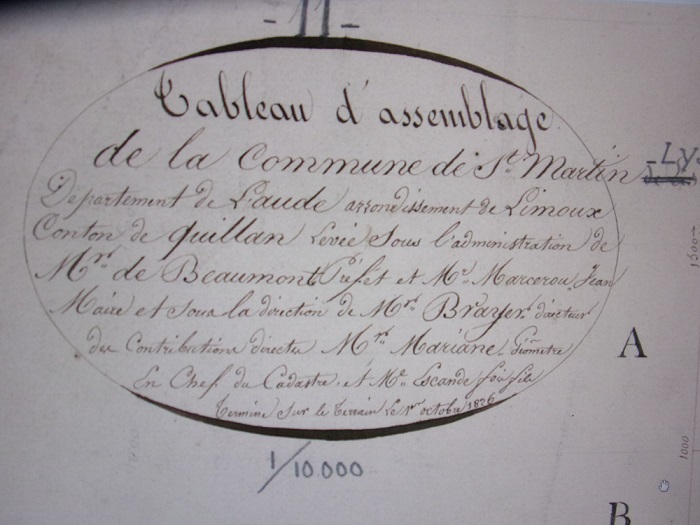 - 11 -
Tableau d'assemblage
de la Commune de St. Martin -Lys
Departement de L'aude arrondissement de Limoux
Conton de Quillan Levée Sous l'administration de
Mr. de Beaumont Préfet et Mr. Marcerou Jean
Maire et sous la direction de Mr. Brayer directeur
des Contributions directes Mr. Mariane Géometre
En Chef du Cadastre et Mr. Escande
Terminé sur le Terrain le 1er octobre 1826
1/10.000
A
B
1500
1000